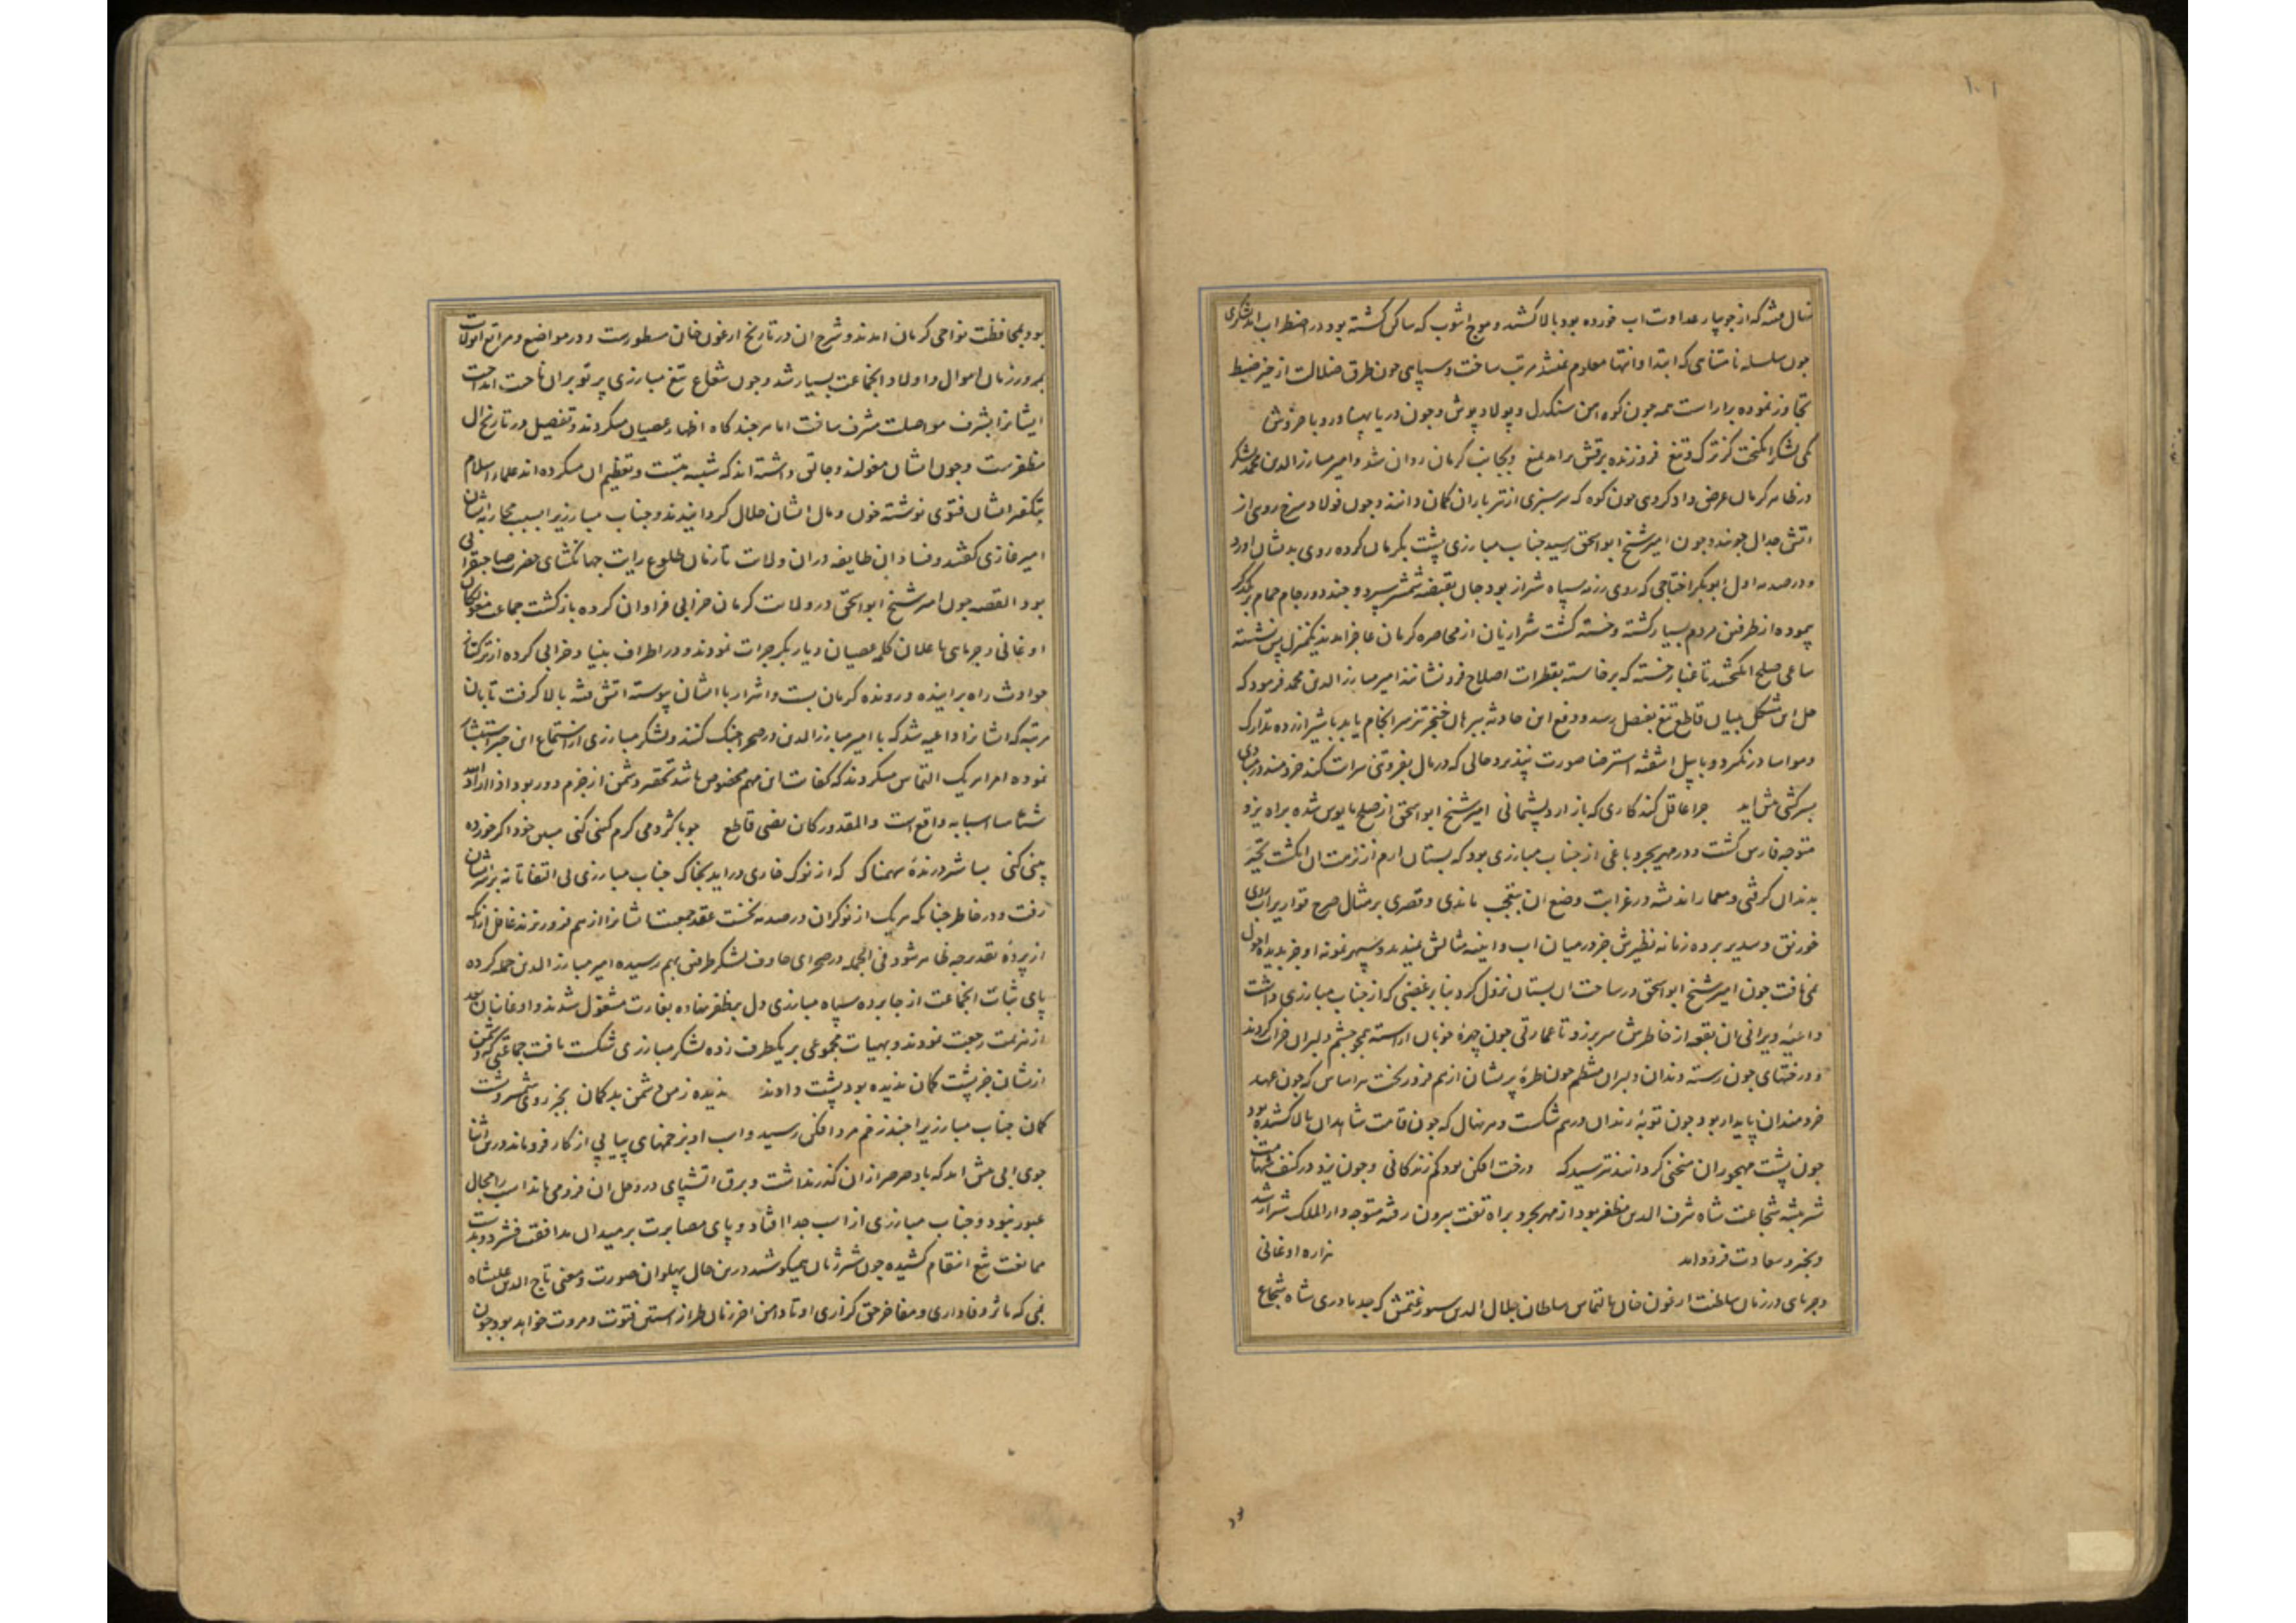 ۱۰۱
نهال فتنه که از جویبار عداوت اب خورده بود بالا کشید و موج اشوب که ساکن کشته بود در اضطراب امد لشکری
چون سلسله نامتناهی که ابتدا و انتها معلوم نمیشد مرتب ساخت و سپاهی چون طرق ضلالت از حیز ضبط
تجاوز نموده براراست همه چون کوه اهن سنکدل و پولاد پوش و چون دریا پهناور و با خروش
یکی لشکر انکیخت کز ترک و تیغ فروزنده برقش برامد بمیغ و بجانب کرمان روان شد و امیر مبارز الدین محمد لشکر
در ظاهر کرمان عرض داد کروهی چون کوه که سرسبزی از تیرباران کمان دانند و چون فولاد سرخ رویی از
اتش جدال جویند و چون امیر شیخ ابو اسحق رسید جناب مبارزی پشت بکرمان کرده روی بدیشان اورد
و در صدمه اول ابوبکر اختاجی که روی رزمه سپاه شیراز بود جان بقبضه شمشیر سپرد و چند دور جام حمام بر یکدیکر
پیموده از طرفین مردم بسیار کشته و خسته کشت شیرازیان از محاصره کرمان عاجز امدند یکمنزل پس نشسته
ساعی صلح انکیختند تا غبار خسته که برخاسته بقطرات اصلاح فرو نشانند امیر مبارز الدین محمد فرمود که
حل این مشکل بلسان قاطع تیغ بفصل رسد و دفع این حادثه ببرهان خنجر تیز سرانجام یابد با شیر ازرده تدارک
و مواسا در نکیرد و با پیل اشفته استرضا صورت نپذیرد حالی که در مال بفروتنی سرایت کند خردمند در مبادی
بسرکشی پیش اید چرا عاقل کند کاری که باز ارد پشیمانی امیر شیخ ابو اسحق از صلح مایوس شده براه یزد
متوجه فارس کشت و در مهریجرد باغی از جناب مبارزی بود که بستان ارم از نزهت ان انکشت تحیر
بدندان کرفتی و معمار اندیشه در غرابت وضع ان بتعجب ماندی و قصری بر مثال صرح قواریر اب روی
خورنق و سدیر برده زمانه نظیرش جز در میان اب و اینه مثالش ندیده و سپهر نمونه او جز بدیده احول
نمی یافت چون امیر شیخ ابو اسحق در ساحت ان بستان نزول کرد بنابر بغضی که از جناب مبارزی داشت
داعیه ویرانی ان بقعه از خاطرش سر بر زد تا عمارتی چون چهره خوبان اراسته همچو چشم دلبران خراب کردند
و درختهای چون رسته دندان دلبران منتظم چون طره پریشان از هم فرو ریخت هر اساس که چون عهد
خردمندان پایدار بود چون توبه رندان درهم شکست و هر نهال که چون قامت شاهدان بالا کشیده بود
چون پشت مهجوران منحنی کردانید نترسید که درخت افکن بود کم زندکانی و چون یزد در کنف حمایت
شیر بیشه شجاعت شاه شرف الدین مظفر بود از مهریجرد براه تفت بیرون رفته متوجه دار الملک شیراز شد
و بخیر و سعادت فرود امد هزاره اوغانی
و جرمایی در زمان سلطنت ارغون خان بالتماس سلطان جلال الدین سیورغتمش که جد مادری شاه شجاع
بود
بود بمحافظت نواحی کرمان امدند و شرح ان در تاریخ ارغون خان مسطورست و در مواضع و مراتع انولایت
بمرور زمان اموال و اولاد انجماعت بسیار شد و چون شعاع تیغ مبارزی پرتو بران ناحیت انداخت
ایشانرا بشرف مواصلت مشرف ساخت اما هر چند کاه اظهار عصیان میکردند و تفصیل در تاریخ ال
مظفرست و چون ایشان مغولند و جاتی داشته اند که شبیه بتست و تعظیم ان میکرده اند علماء اسلام
بتکفیر ایشان فتوی نوشته خون و مال ایشان حلال کردانیدند و جناب مبارزیرا بسبب محاربه ایشان
امیر غازی کفتند و فساد ان طایفه در ان ولایت تا زمان طلوع رایت جهانکشای حضرت صاحبقرانی
بود القصه چون امیر شیخ ابو اسحق در ولایت کرمان خرابی فراوان کرده بازکشت جماعت مغولان
اوغانی و جرمایی باعلان کلمه عصیان دیار بکر جرات نمودند و در اطراف بنیاد خرابی کرده از ترکتاز
حوادث راه بر اینده و رونده کرمان بست و اشرار با ایشان پیوسته اتش فتنه بالا کرفت تا بان
مرتبه که ایشانرا داعیه شد که با امیر مبارز الدین در صحرا جنک کنند و لشکر مبارزی از استماع این خبر استبشار
نموده امرا هر یک التماس میکردند که کفایت این مهم مخصوص باشد تحقیر دشمن از حزم دور بود اذا اراد الله
شیئا اسبابه واقع است و المقدور کائن نصی قاطع چو با کژدمی کرم کینی کنی مبین خرد اکر خورده
بینی کنی بسا شیر درنده سهمناک که از نوک خاری دراید بخاک جناب مبارزی بی التفاتانه بر سر ایشان
رفت و در خاطر چنانکه هر یک از نوکران در صدمه نخست عقد جمعیت ایشانرا از هم فرو ریزند غافل از انکه
از پرده تقدیر چه ظاهر شود فی الجمله در صحرای خاوف لشکر طرفین بهم رسیده امیر مبارز الدین حمله کرده
پای ثبات انجماعت از جا برده سپاه مبارزی دل بمظفر نهاده بغارت مشغول شدند و اوغانیان بعد
از هزیمت رجعت نمودند و بهیات مجموعی بر یکطرف زده لشکر مبارزی شکست یافت جماعتی که دشمن
ازیشان جز پشت کمان ندیده بود پشت دادند ندیده ز من دشمن بدکمان بجز روی شمشیر و پشت
کمان جناب مبارزیرا چند زخم مرد افکن رسید و اسب او بزخمهای پیاپی از کار فرو ماند در این اثنا
جوی ابی پیش امد که باد صرصر از ان کذر نداشت و برق اتشپای در وحل ان فرو می ماند اسب را مجال
عبور نبود و جناب مبارزی از اسب جدا افتاد و پای مصابرت بر میدان مدافعت فشرد و بدست
ممانعت تیغ انتقام کشیده چون شیر ژیان میکوشید در این حال پهلوان صورت و معنی تاج الدین علیشاه
بمی که ماثر وفاداری و مفاخر حق کزاری او تا دامن اخر زمان طراز استین فتوت و مروت خواهد بود چون